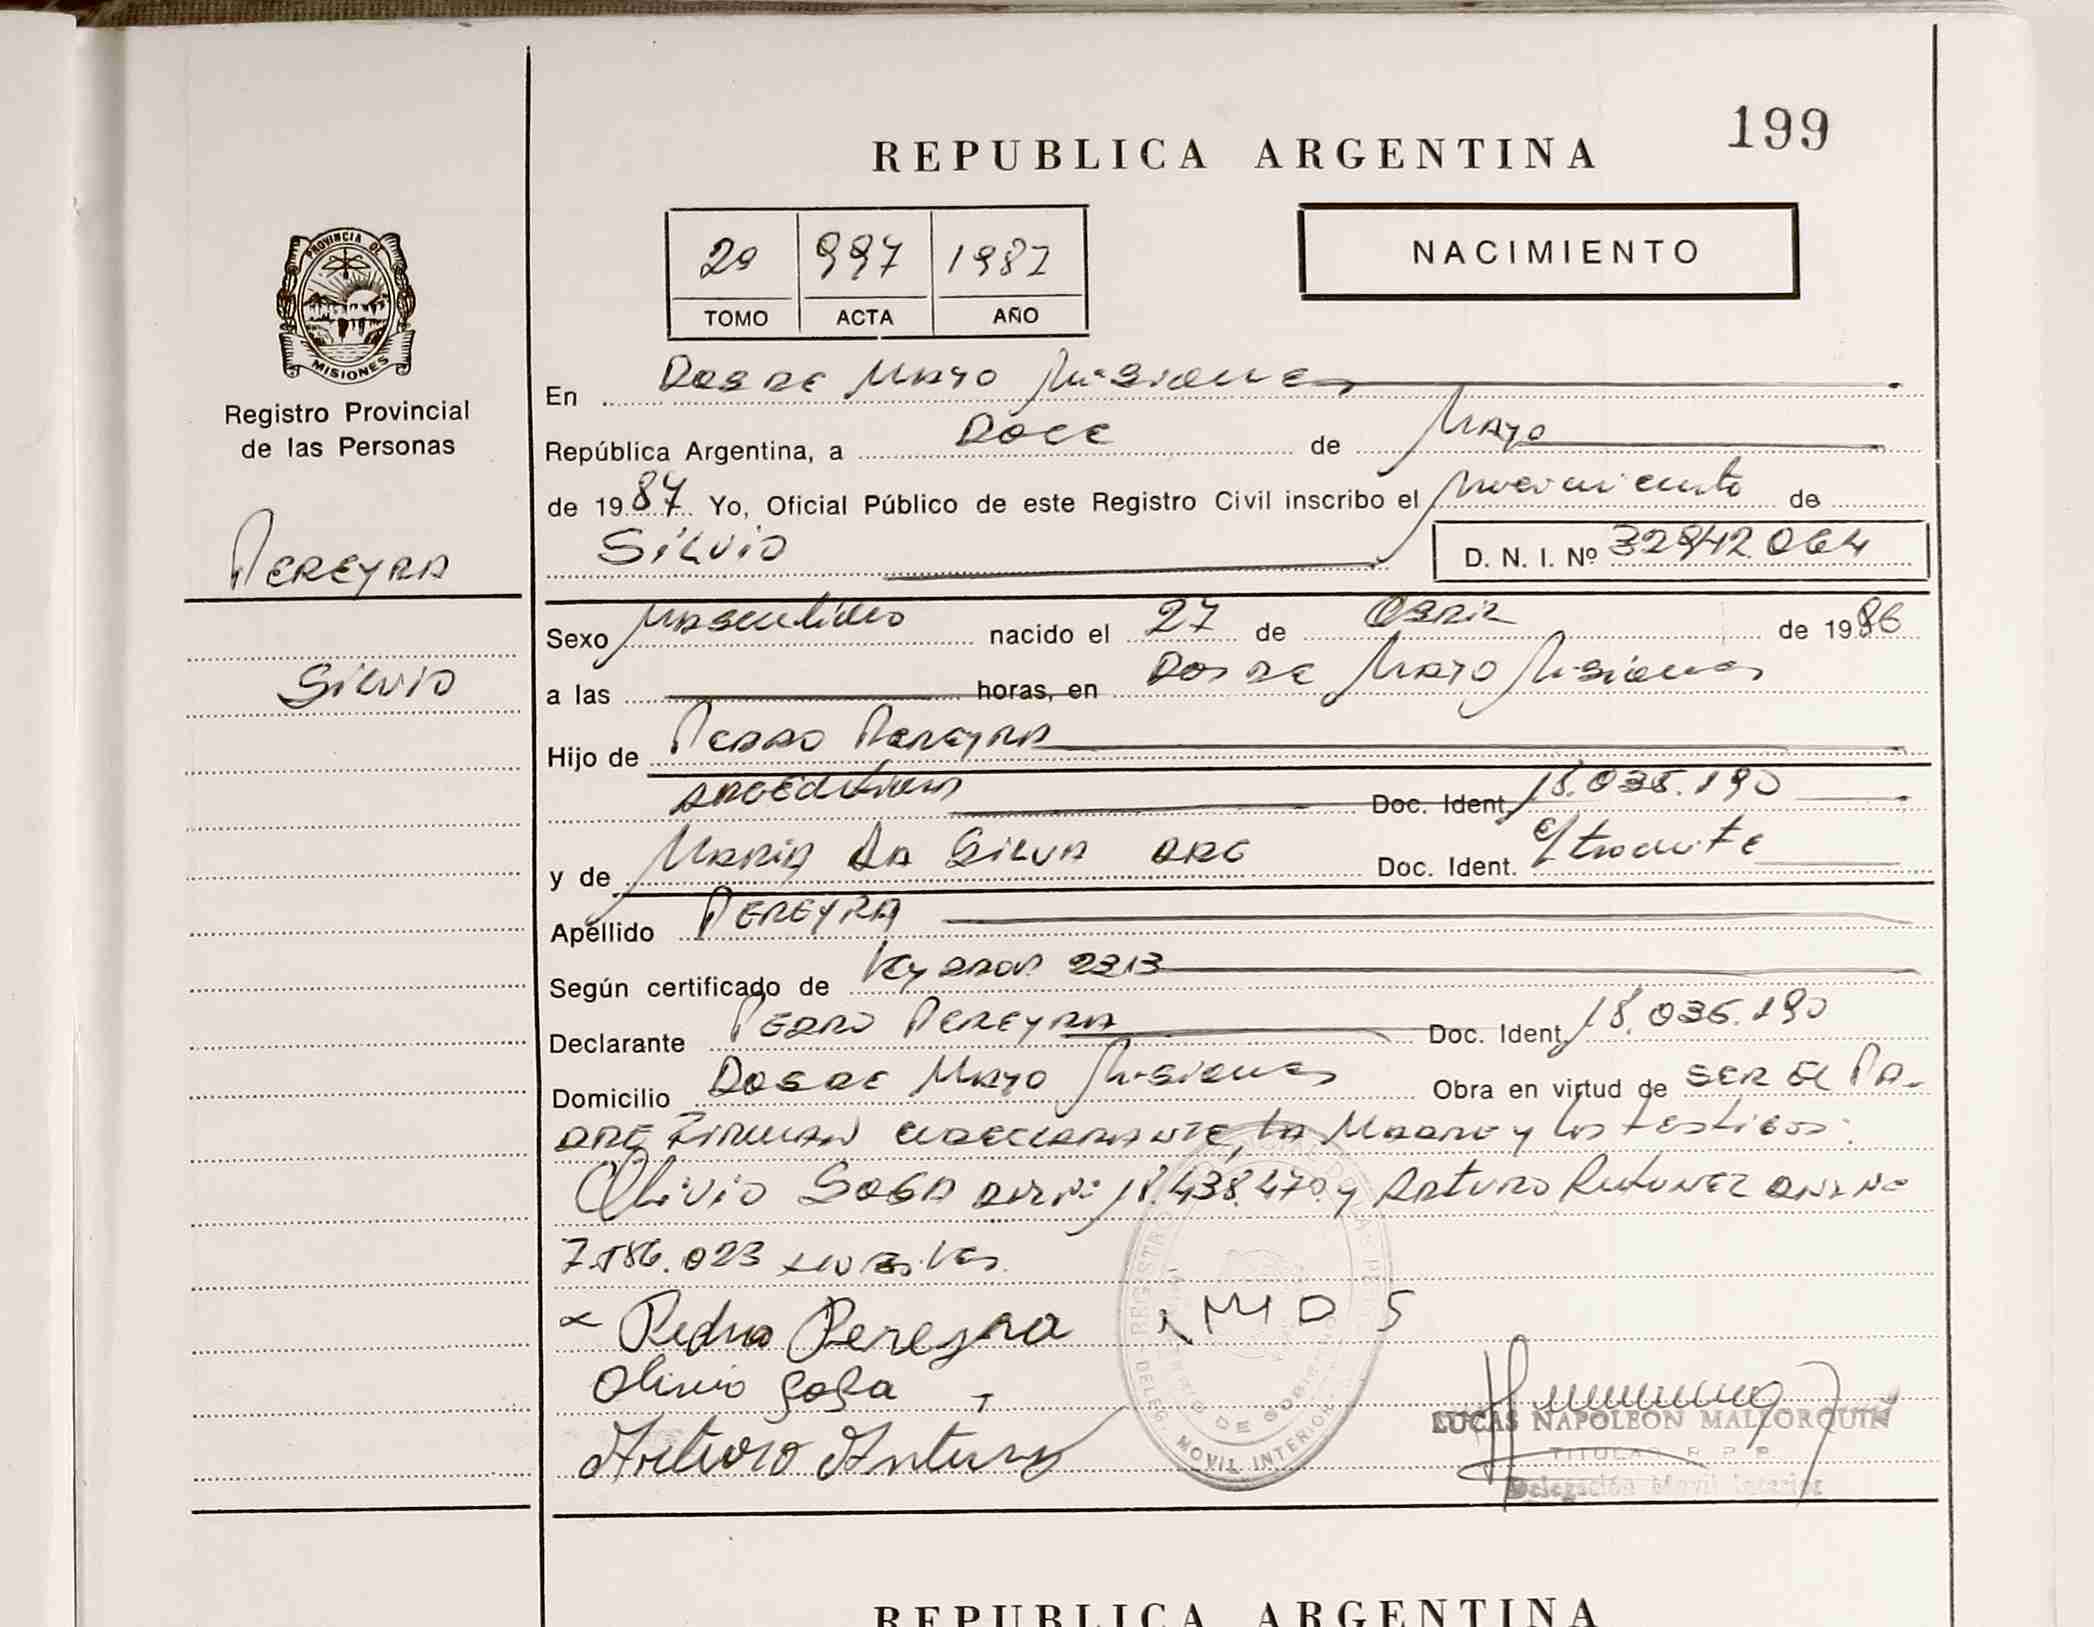 199
REPUBLICA ARGENTINA
NACIMIENTO
29 997 1987
TOMO ACTA AÑO
PROVINCIA DE
MISIONES
Registro Provincial
de las Personas
PEREYRA
Silvio
En Dos de Mayo Misiones
República Argentina, a Doce de Mayo
de 1987 Yo, Oficial Público de este Registro Civil inscribo el Nacimiento de
Silvio D. N. I. Nº 32.942.064
Sexo Masculino nacido el 27 de Abril de 1986
a las horas, en Dos de Mayo Misiones
Hijo de Pedro Pereyra
Argentino Doc. Ident. 18.035.190
y de Maria Da Silva Arg Doc. Ident. e/tramite
Apellido PEREYRA
Según certificado de Ley 2313
Declarante Pedro Pereyra Doc. Ident. 18.036.190
Domicilio Dos de Mayo Misiones Obra en virtud de ser el Pa-
dre Firman el declarante, la Madre y los testigos:
Olivio Sosa DNI Nº 18.438.470 y Arturo DNI Nº
7.586.023
Pedro Pereyra M D S
Olivio Sosa
Arturo Antunez
REGISTRO
DELEG. MOVIL INTERIOR
LUCAS NAPOLEON MALLORQUIN
TITULAR R. P. P.
Delegación Movil Interior
REPUBLICA ARGENTINA